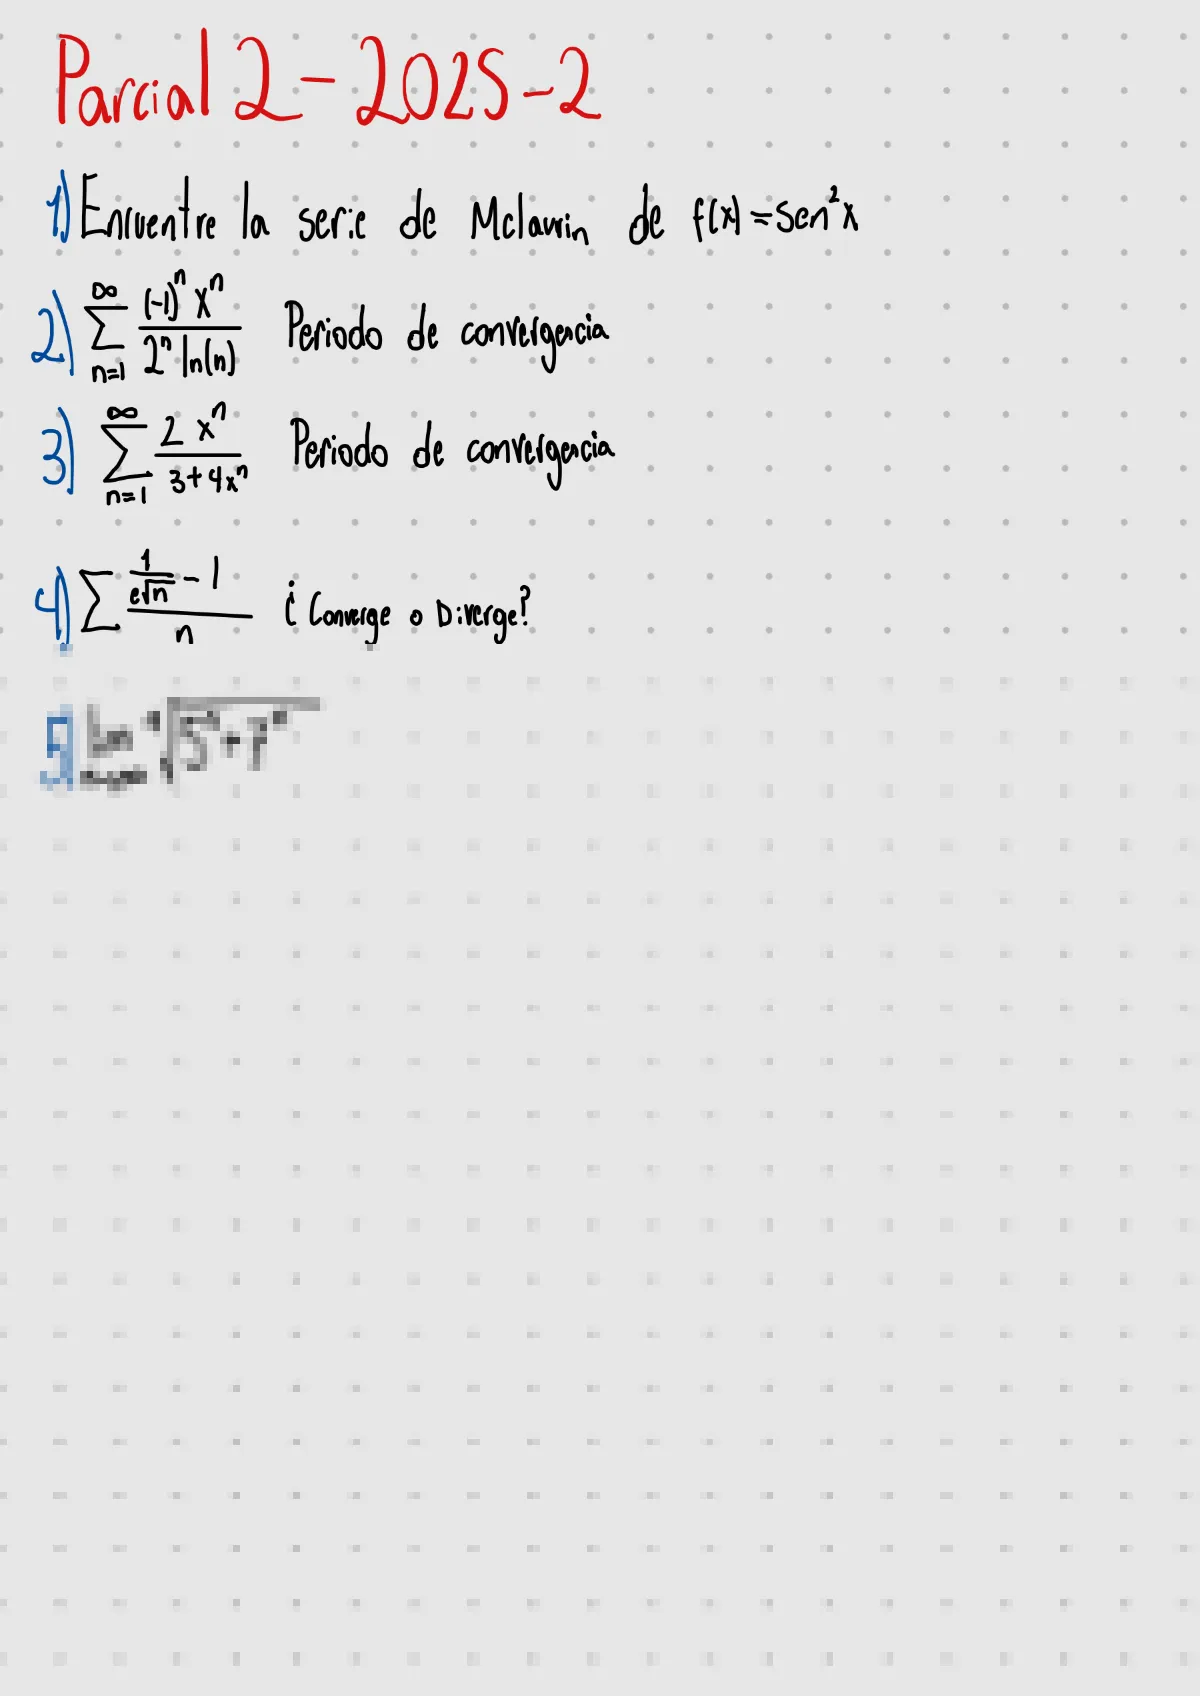 Parcial 2-2025-2
1) Encuentre la serie de Mclaurin de f(x) = Sen²x
2) ∑_{n=1}^{∞} \frac{(-1)^n x^n}{2^n ln(n)} Periodo de convergencia
3) ∑_{n=1}^{∞} \frac{2 x^n}{3+4x^n} Periodo de convergencia
4) ∑ \frac{\frac{1}{e\sqrt{n}} - 1}{n} ¿Converge o Diverge?
5)